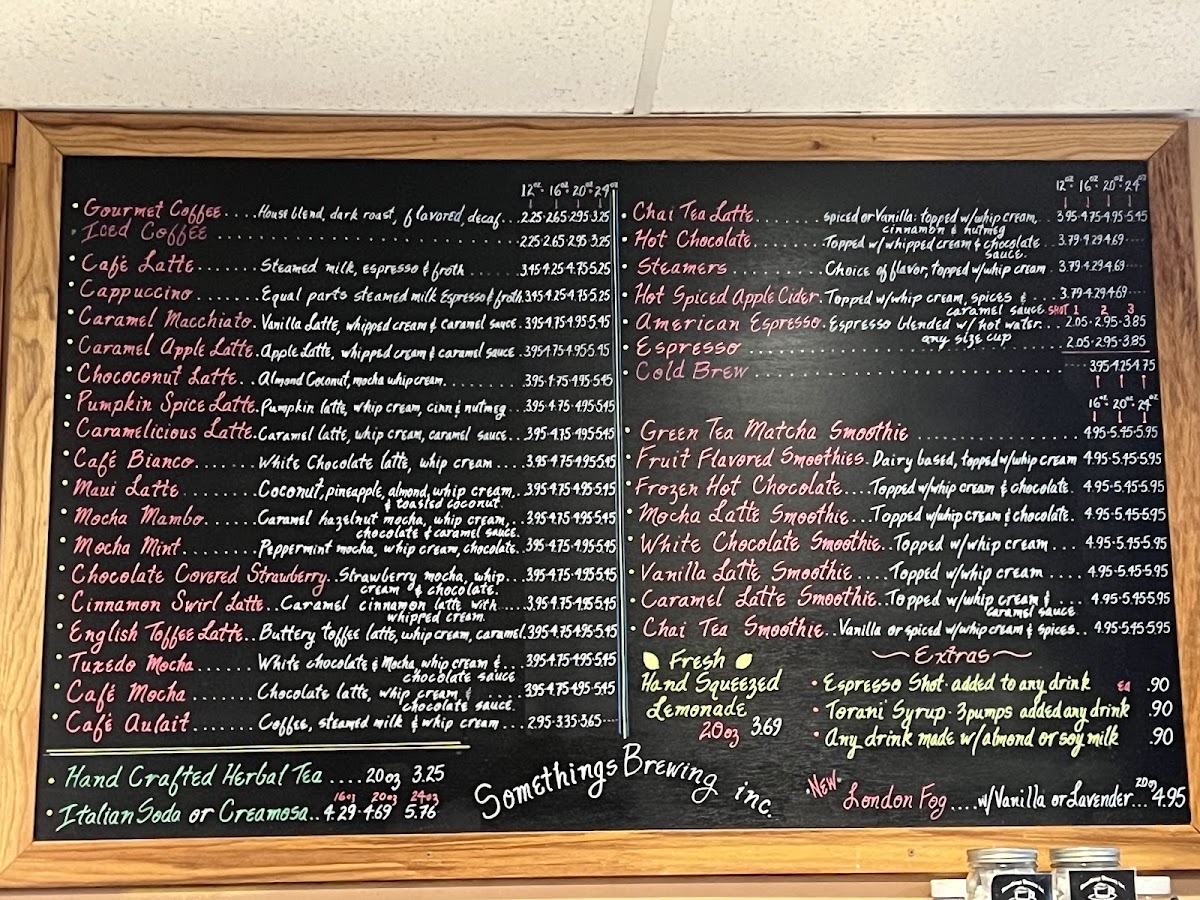 12oz. 16oz. 20oz. 24oz
Gourmet Coffee....House blend, dark roast, flavored, decaf...2.25·2.65·2.95·3.25
Iced Coffee ........ 2.25·2.65·2.95·3.25
Café Latte.......Steamed milk, espresso & froth.......3.45·4.25·4.75·5.25
Cappuccino.......Equal parts steamed milk Espresso & froth.3.45·4.25·4.75·5.25
Caramel Macchiato.Vanilla Latte, whipped cream & caramel sauce.3.95·4.75·4.95·5.45
Caramel Apple Latte.Apple Latte, whipped cream & caramel sauce...3.95·4.75·4.95·5.45
Chococonut Latte..Almond Coconut, mocha whip cream.........3.95·4.75·4.95·5.45
Pumpkin Spice Latte.Pumpkin latte, whip cream, cinn & nutmeg...3.95·4.75·4.95·5.45
Caramelicious Latte.Caramel latte, whip cream, caramel sauce...3.95·4.75·4.95·5.45
Café Bianco.......White Chocolate latte, whip cream....3.95·4.75·4.95·5.45
Maui Latte........Coconut, pineapple, almond, whip cream,..3.95·4.75·4.95·5.45
& toasted coconut.
Mocha Mambo.......Caramel hazelnut mocha, whip cream,..3.95·4.75·4.95·5.45
chocolate & caramel sauce.
Mocha Mint........Peppermint mocha, whip cream, chocolate.3.95·4.75·4.95·5.45
Chocolate Covered Strawberry..Strawberry mocha, whip...3.95·4.75·4.95·5.45
cream & chocolate.
Cinnamon Swirl Latte..Caramel cinnamon latte with....3.95·4.75·4.95·5.45
whipped cream.
English Toffee Latte..Buttery toffee latte, whip cream, caramel.3.95·4.75·4.95·5.45
Tuxedo Mocha.......White chocolate & Mocha, whip cream &...3.95·4.75·4.95·5.45
chocolate sauce
Café Mocha........Chocolate latte, whip cream &......3.95·4.75·4.95·5.45
chocolate sauce.
Café Aulait.......Coffee, steamed milk & whip cream...2.95·3.35·3.65----
Hand Crafted Herbal Tea....20oz 3.25
16oz 20oz 24oz
Italian Soda or Creamosa..4.29·4.69 5.76
12oz. 16oz. 20oz. 24oz
Chai Tea Latte.......spiced or Vanilla: topped w/whip cream,..3.95·4.75·4.95·5.45
cinnamon & nutmeg
Hot Chocolate.......Topped w/whipped cream & chocolate..3.79·4.29·4.69----
sauce.
Steamers.........Choice of flavor, topped w/whip cream.3.79·4.29·4.69----
Hot Spiced Apple Cider.Topped w/whip cream, spices &....3.79·4.29·4.69----
caramel sauce
SHOT 1 2 3
American Espresso.Espresso blended w/ hot water...2.05·2.95·3.85
any size cup
Espresso ........ 2.05·2.95·3.85
Cold Brew ........ 3.95·4.25·4.75
16oz. 20oz. 24oz
Green Tea Matcha Smoothie ........ 4.95·5.45·5.95
Fruit Flavored Smoothies.Dairy based, topped w/whip cream 4.95·5.45·5.95
Frozen Hot Chocolate....Topped w/whip cream & chocolate.4.95·5.45·5.95
Mocha Latte Smoothie...Topped w/whip cream & chocolate.4.95·5.45·5.95
White Chocolate Smoothie..Topped w/whip cream....4.95·5.45·5.95
Vanilla Latte Smoothie....Topped w/whip cream....4.95·5.45·5.95
Caramel Latte Smoothie..Topped w/whip cream &....4.95·5.45·5.95
caramel sauce
Chai Tea Smoothie..Vanilla or spiced w/whip cream & spices..4.95·5.45·5.95
Fresh
Hand Squeezed
Lemonade
20oz 3.69
Extras
Espresso Shot·added to any drink ea .90
Torani Syrup·3pumps added any drink .90
Any drink made w/almond or soy milk .90
Somethings Brewing inc.
·New·
London Fog....w/Vanilla or Lavender...20oz 4.95